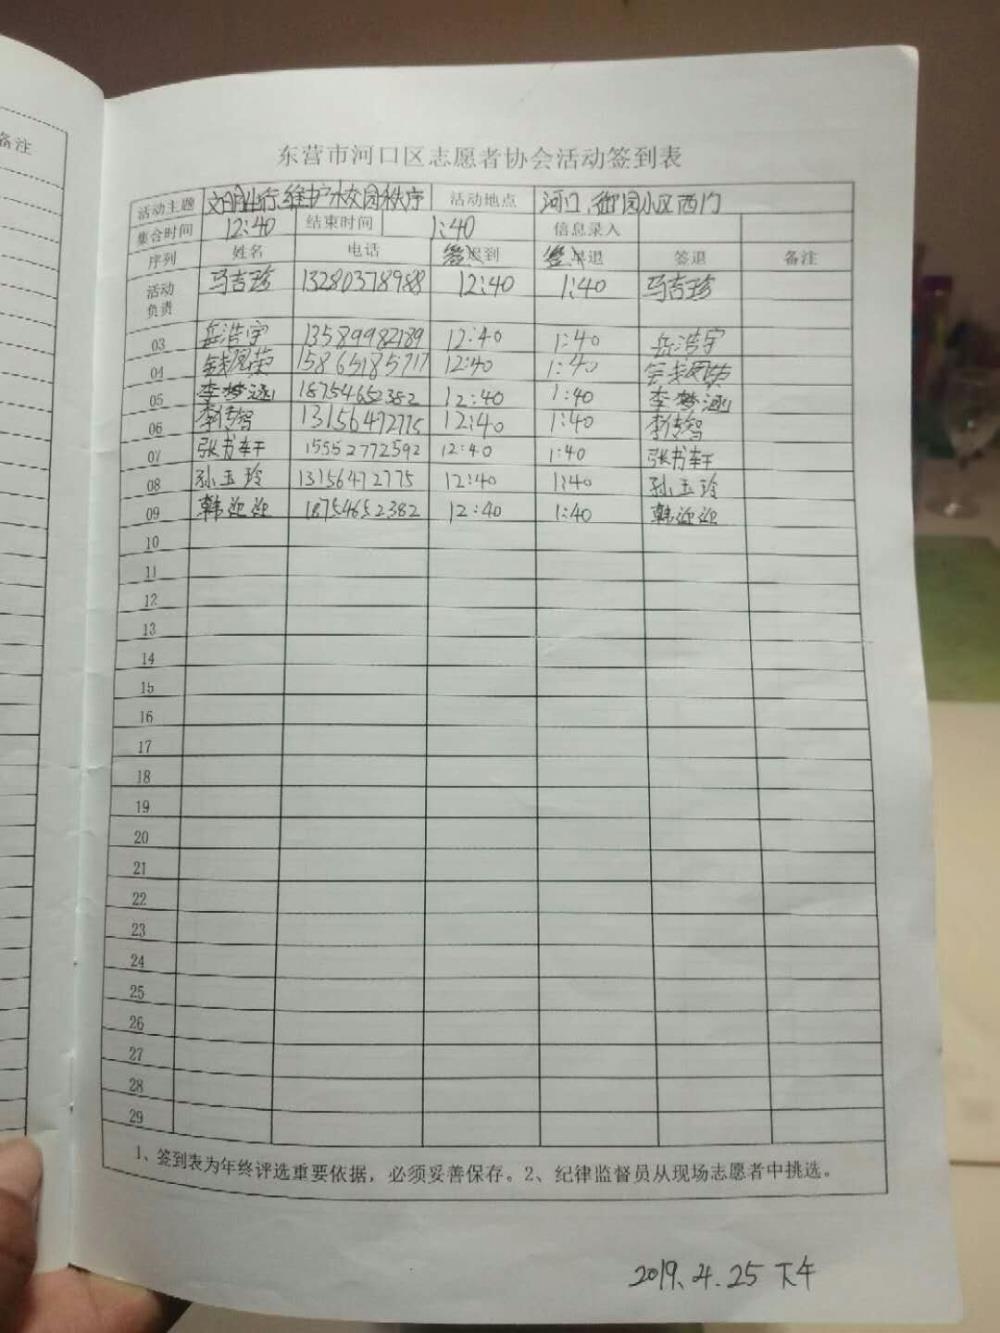 备注
东营市河口区志愿者协会活动签到表
活动主题 文明出行,维护校园秩序 活动地点 河口,御园小区西门
集合时间 12:40 结束时间 1:40 信息录入
序列 姓名 电话 签到 签退 备注
活动负责 马吉珍 13280378988 12:40 1:40 马吉珍
03 岳浩宇 13589982189 12:40 1:40 岳浩宇
04 15865185717 12:40 1:40
05 李梦涵 18754652382 12:40 1:40 李梦涵
06 李传智 13156472775 12:40 1:40 李传智
07 张书轩 15552772592 12:40 1:40 张书轩
08 孙玉玲 13156472775 12:40 1:40 孙玉玲
09 韩迎迎 18754652382 12:40 1:40 韩迎迎
10
11
12
13
14
15
16
17
18
19
20
21
22
23
24
25
26
27
28
29
1、签到表为年终评选重要依据，必须妥善保存。2、纪律监督员从现场志愿者中挑选。
2019.4.25 下午